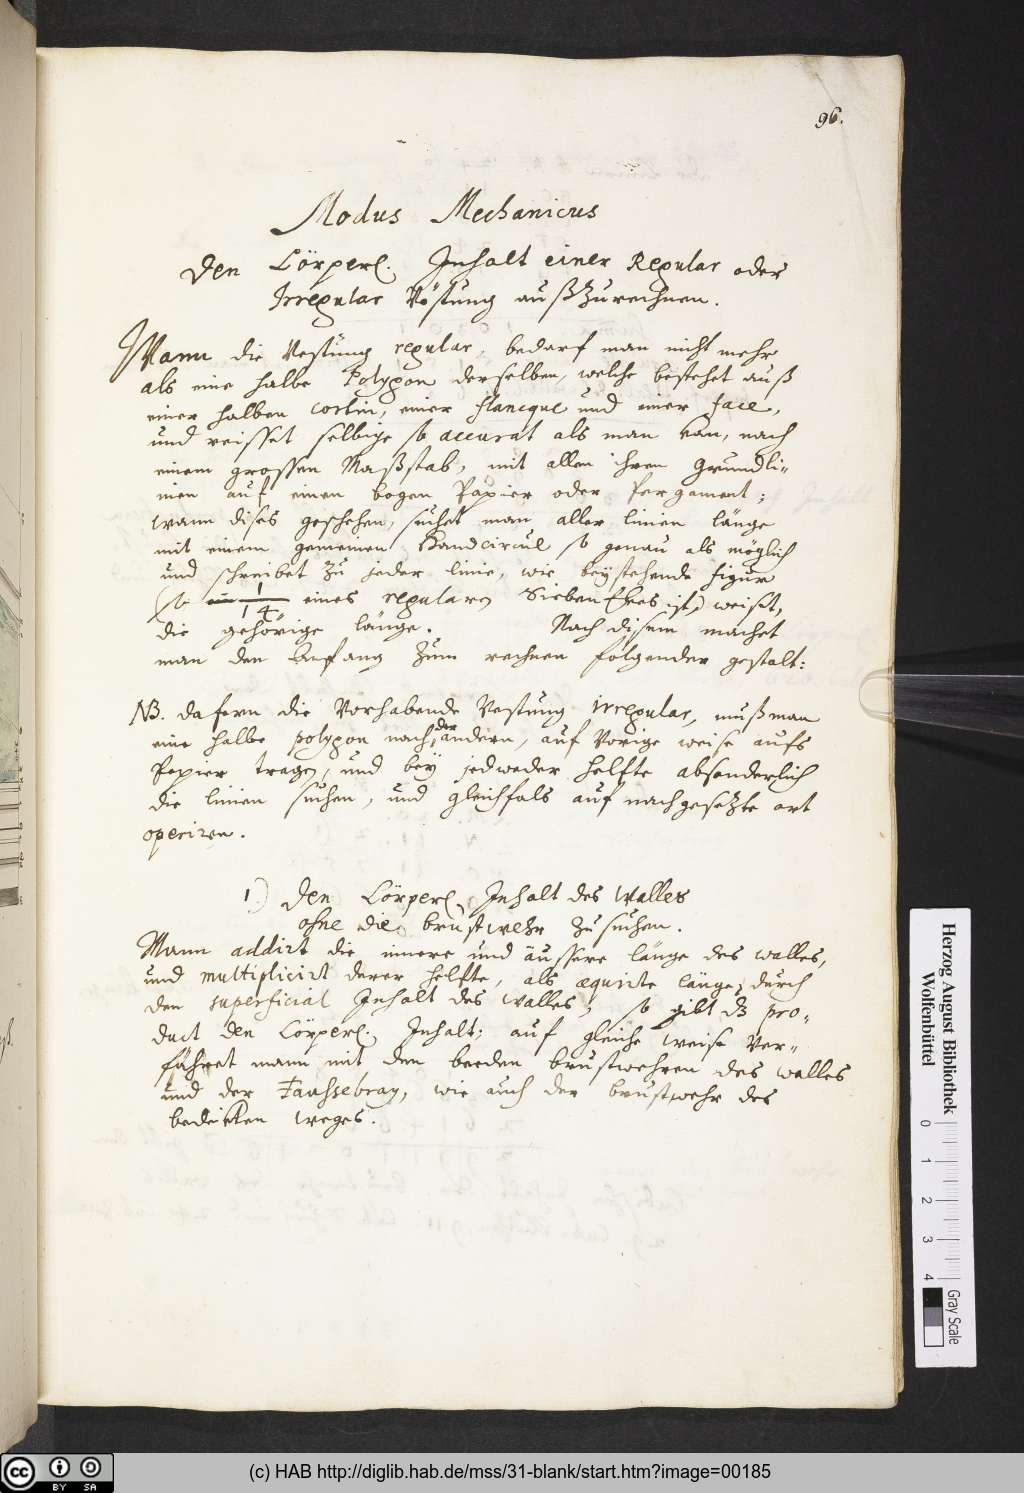 96.
Modus Mechanicus
den Cörperl. Inhalt einer Regular oder
Irregular Vöstung außzurechnen.
Wann die Vestung regular, bedarf man nicht mehr
als eine halbe Polygon derselben, welche bestehet auß
einer halben cortin, einer flancque und einer face,
und reisset selbige so accurat als man kan, nach
einem grossen Maßstab, mit allen ihren Grundli-
nien auf einen bogen Papier oder Pergament;
wann dises geschehen, suchet man aller linien länge
mit einem gemeinen Handcircul so genau als möglich
und schreibet zu jeder linie, wie beystehende figur
(so 1/14 eines regularen SiebenEkes ist) weiset,
die gehörige länge. Nach disem machet
man den Anfang zum rechnen folgender gestalt:
NB. dafern die Vorhabende Vestung irregular, muß man
eine halbe polygon nach der andern, auf Vorige weise aufs
Papier tragen, und bey jedweder helfte absonderlich
die linien suchen, und gleichfals auf nachgesetzte art
operiren.
1.) den Cörperl. Inhalt des Walles
ohne die brustwehr zu suchen.
Mann addirt die innere und äussere länge des walles,
und multiplicirt derer helfte, als æquirte länge, durch
den superficial Inhalt des walles, so gibt dz pro-
duct den Cörperl. Inhalt; auf gleiche weise Ver-
fähret mann mit den beeden brustwehren des walles
und der Faussebray, wie auch der brustwehr des
bedeckten weges.
Herzog August Bibliothek
Wolfenbüttel
0 1 2 3 4
Gray Scale
cc BY SA
(c) HAB http://diglib.hab.de/mss/31-blank/start.htm?image=00185